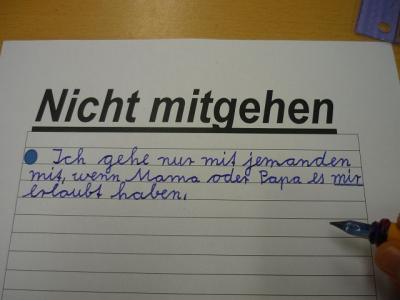 Nicht mitgehen
Ich gehe nur mit jemanden
mit, wenn Mama oder Papa es mir
erlaubt haben.